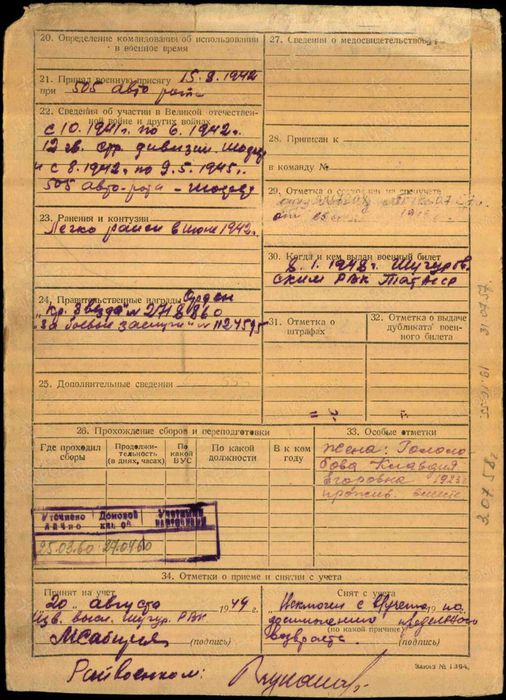 20. Определение командования об использовании
в военное время
21. Принял военную присягу 15.8.1942
при 505 авто рота
22. Сведения об участии в Великой отечествен-
ной войне и других войнах
с 10.1941г. по 6.1942г.
12 гв. стр. дивизии
и с 8.1942г. по 9.5.1945г.
505 авто-рота -
23. Ранения и контузии
Легко ранен в июне 1942г.
24. Правительственные награды Орден
"Кр. Звезда" № 2718860
"За боевые заслуги" № 1124595
25. Дополнительные сведения
26. Прохождение сборов и переподготовки
Где проходил сборы
Продолжительность (в днях, часах)
По какой ВУС
По какой должности
В к ком году
Уточнено лично
Домовой кн.
25.02.60 27.04.60
27. Сведения о медосвидетельствов.
28. Приписан к
в команду №
29. Отметка о состоянии на спецучете
30. Когда и кем выдан военный билет
8.1.1948г. Шугуров.
ским РВК ТатАсср
31. Отметка о штрафах
32. Отметка о выдаче дубликата военного билета
33. Особые отметки
Жена: Гололо-
бова Клавдия
Егоровна 1923г
прожив. вместе
34. Отметки о приеме и снятии с учета
Принят на учет
20 " августа 1949 г.
Шугур. РВК
(подпись)
Снят с учета
Исключен с в/учета по
достижению предельного
(по какой причине)
возраста.
(подпись)
Райвоенком:
Заказ № 1394.
21 07 57.
19.10.55